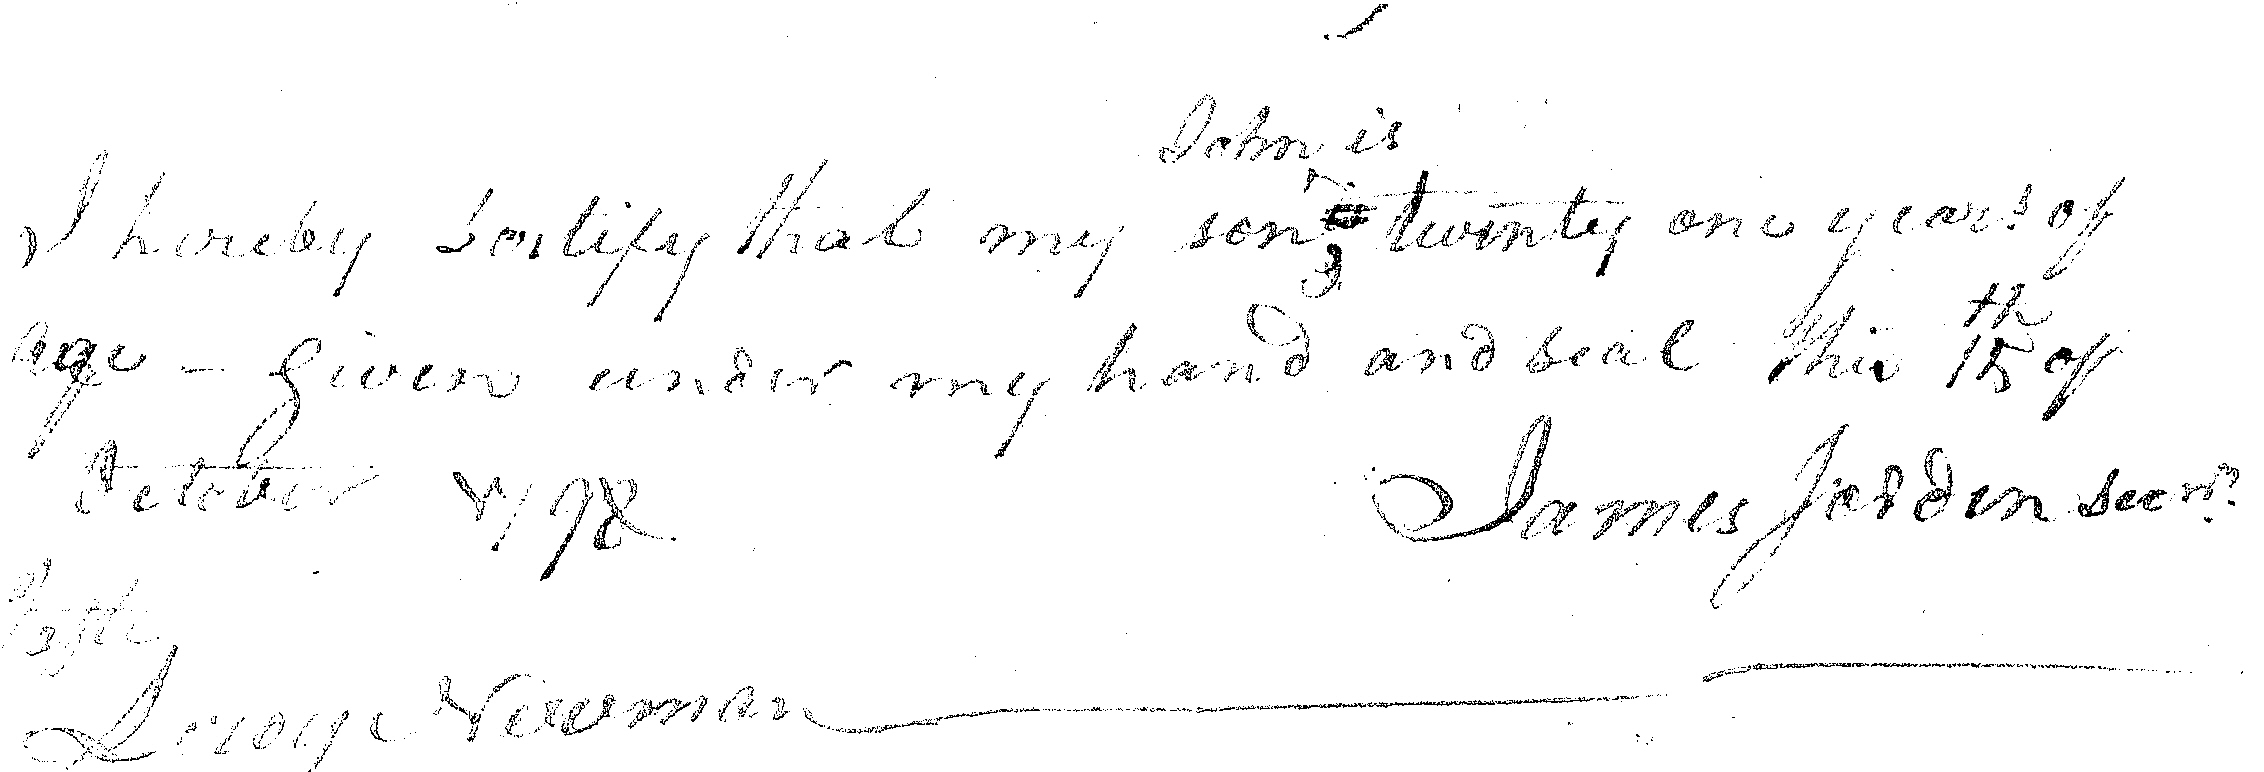 John is
I hereby certify that my son twenty one years of
age - Given under my hand and seal this 15th of
October 1798
James Jorden senr.
Test
Leroye Newman